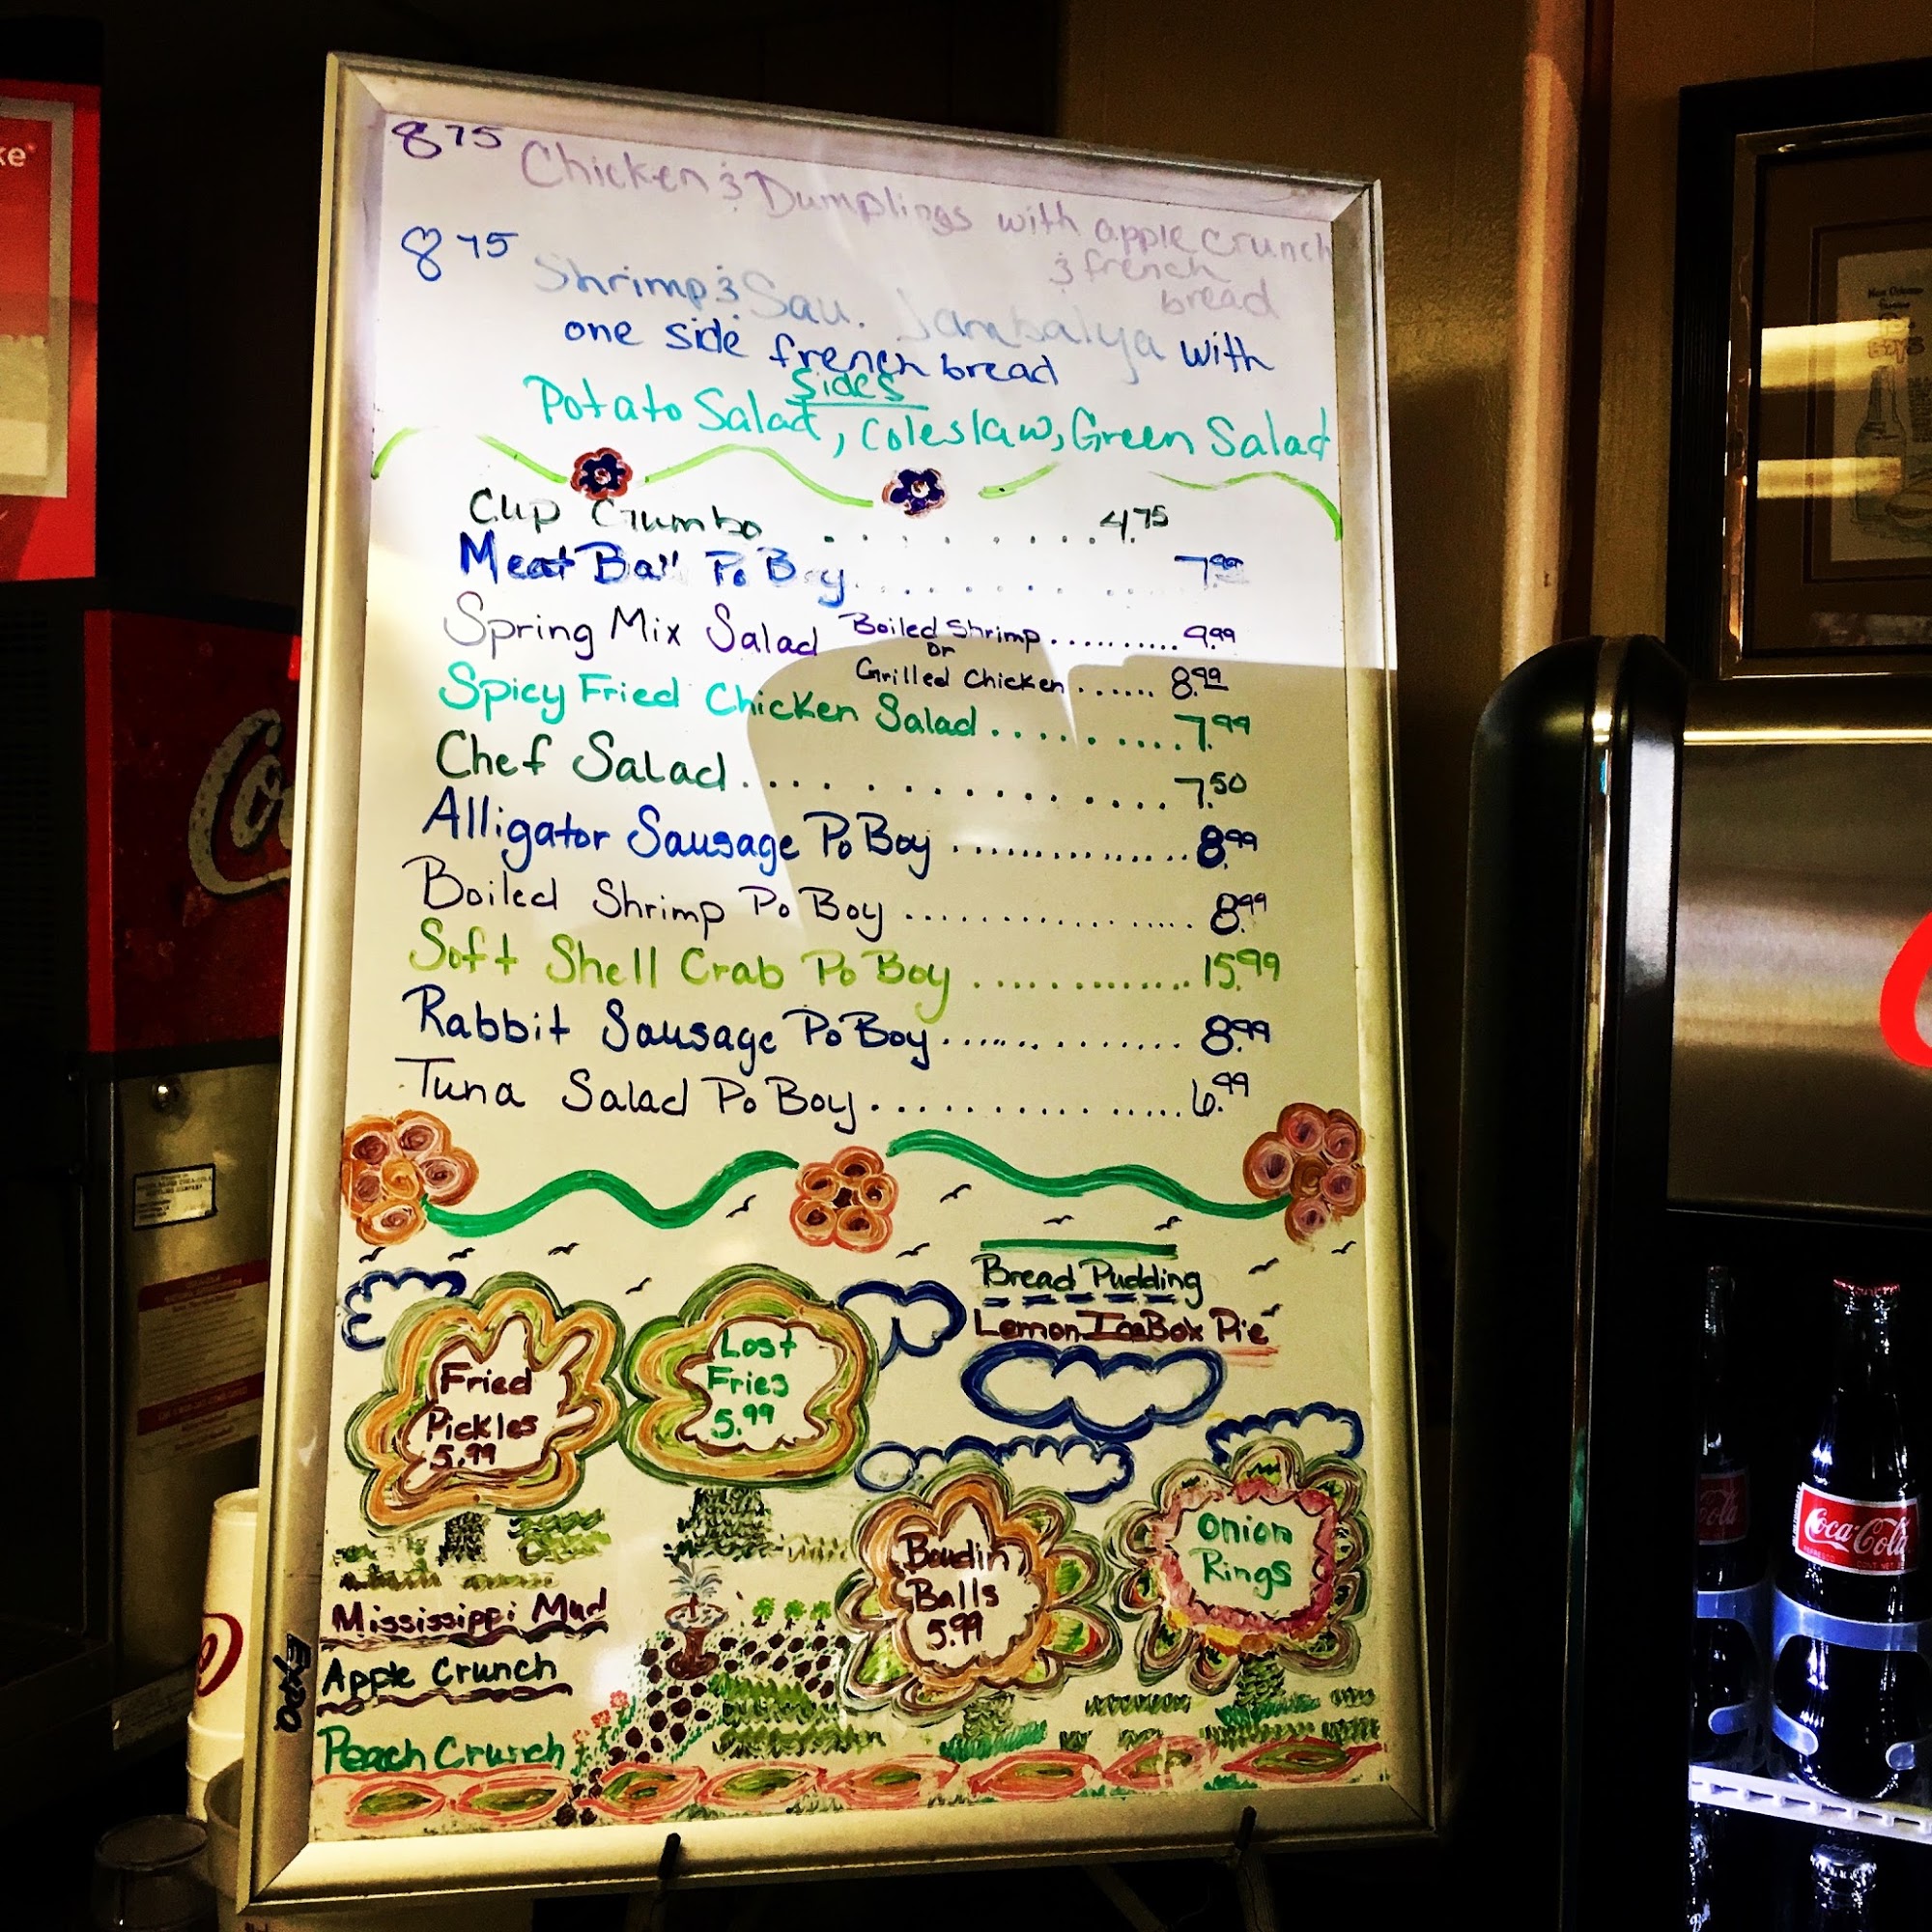 8 75 Chicken & Dumplings with apple crunch
& french
bread
8 75 Shrimp & Sau. Jambalya with
one side french bread
Sides
Potato Salad, Coleslaw, Green Salad
Cup Gumbo . . . . . . . . . 4.75
Meat Ball Po Boy . . . . . . . . 7.99
Spring Mix Salad Boiled Shrimp .......... 9.99
or
Grilled Chicken ...... 8.99
Spicy Fried Chicken Salad ......... 7.99
Chef Salad ................ 7.50
Alligator Sausage Po Boy ............... 8.99
Boiled Shrimp Po Boy ................. 8.99
Soft Shell Crab Po Boy ............. 15.99
Rabbit Sausage Po Boy ............. 8.99
Tuna Salad Po Boy ................ 6.99
Bread Pudding
Lemon IceBox Pie
Fried
Pickles
5.99
Lost
Fries
5.99
Boudin
Balls
5.99
Onion
Rings
Mississippi Mud
Apple Crunch
Peach Crunch
Expo
ke
Co
Coca-Cola
Cola